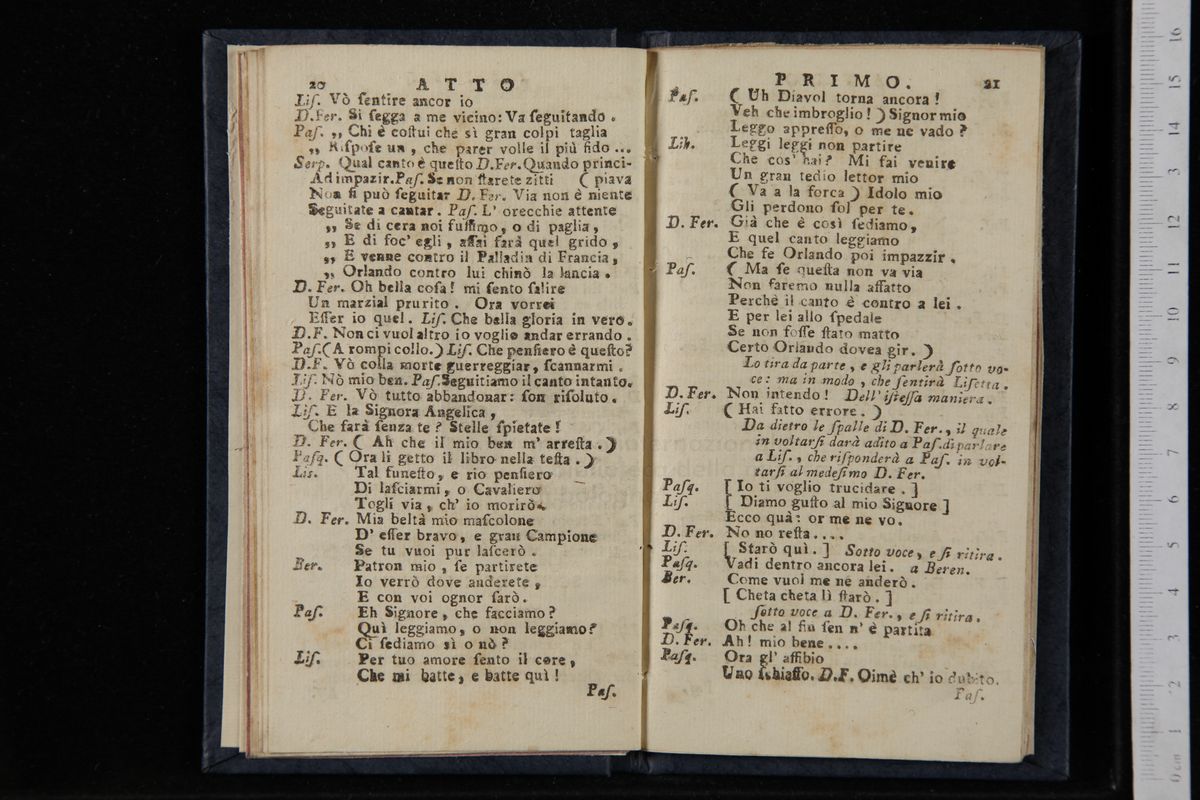 20 ATTO
Liſ. Vò ſentire ancor io
D.Fer. Si ſegga a me vicino: Va ſeguitando.
Paſ. „ Chi è coſtui che sì gran colpi taglia
„ Riſpoſe un, che parer volle il più fido ...
Serp. Qual canto è queſto D.Fer. Quando princi-
Ad impazir. Paſ. Se non ſtarete zitti ( piava
Non ſi può ſeguitar D. Fer. Via non è niente
Seguitate a cantar. Paſ. L' orecchie attente
„ Se di cera noi fuſſimo, o di paglia,
„ E di foc' egli, aſſai farà quel grido,
„ E venne contro il Palladin di Francia,
„ Orlando contro lui chinò la lancia.
D. Fer. Oh bella coſa! mi ſento ſalire
Un marzial prurito. Ora vorrei
Eſſer io quel. Liſ. Che bella gloria in vero.
D.F. Non ci vuol altro io voglio andar errando.
Paſ. ( A rompicollo. ) Liſ. Che penſiero è queſto?
D.F. Vò colla morte guerreggiar, ſcannarmi.
Liſ. Nò mio ben. Paſ. Seguitiamo il canto intanto.
D. Fer. Vò tutto abbandonar: ſon riſoluto.
Liſ. E la Signora Angelica,
Che farà ſenza te? Stelle ſpietate!
D. Fer. ( Ah che il mio ben m' arreſta. )
Paſq. ( Ora li getto il libro nella teſta. )
Lis. Tal funeſto, e rio penſiero
Di laſciarmi, o Cavaliero
Togli via, ch' io morirò.
D. Fer. Mia beltà mio maſcolone
D' eſſer bravo, e gran Campione
Se tu vuoi pur laſcerò.
Ber. Patron mio, ſe partirete
Io verrò dove anderete,
E con voi ognor ſarò.
Paſ. Eh Signore, che facciamo?
Quì leggiamo, o non leggiamo?
Ci ſediamo sì o nò?
Liſ. Per tuo amore ſento il core,
Che mi batte, e batte quì!
Paſ.
PRIMO. 21
Paſ. ( Uh Diavol torna ancora!
Veh che imbroglio! ) Signor mio
Leggo appreſſo, o me ne vado?
Lib. Leggi leggi non partire
Che cos' hai? Mi fai venire
Un gran tedio lettor mio
( Va a la forca ) Idolo mio
Gli perdono ſol per te.
D. Fer. Già che è così ſediamo,
E quel canto leggiamo
Che fe Orlando poi impazzir.
Paſ. ( Ma ſe queſta non va via
Non faremo nulla affatto
Perchè il canto è contro a lei.
E per lei allo ſpedale
Se non foſſe ſtato matto
Certo Orlando dovea gir. )
Lo tira da parte, e gli parlerà ſotto vo-
ce: ma in modo, che ſentirà Liſetta.
D. Fer. Non intendo! Dell' iſteſſa maniera.
Liſ. ( Hai fatto errore. )
Da dietro le ſpalle di D. Fer., il quale
in voltarſi darà adito a Paſ. di parlare
a Liſ., che riſponderà a Paſ. in vol-
tarſi al medeſimo D. Fer.
Paſq. [ Io ti voglio trucidare. ]
Liſ. [ Diamo guſto al mio Signore ]
Ecco quà: or me ne vo.
D. Fer. No no reſta....
Liſ. [ Starò quì. ] Sotto voce, e ſi ritira.
Paſq. Vadi dentro ancora lei. a Beren.
Ber. Come vuol me ne anderò.
[ Cheta cheta lì ſtarò. ]
ſotto voce a D. Fer., e ſi ritira.
Paſq. Oh che al fin ſen n' è partita
D. Fer. Ah! mio bene....
Paſq. Ora gl' affibio
Uno ſchiaffo. D.F. Oimè ch' io dubito.
Paſ.
0 cm 1 2 3 4 5 6 7 8 9 10 11 12 13 14 15 16